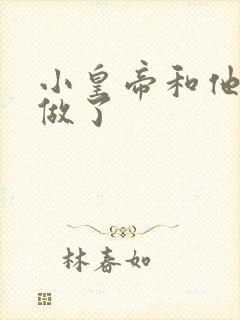 小皇帝和他
做了
林春如